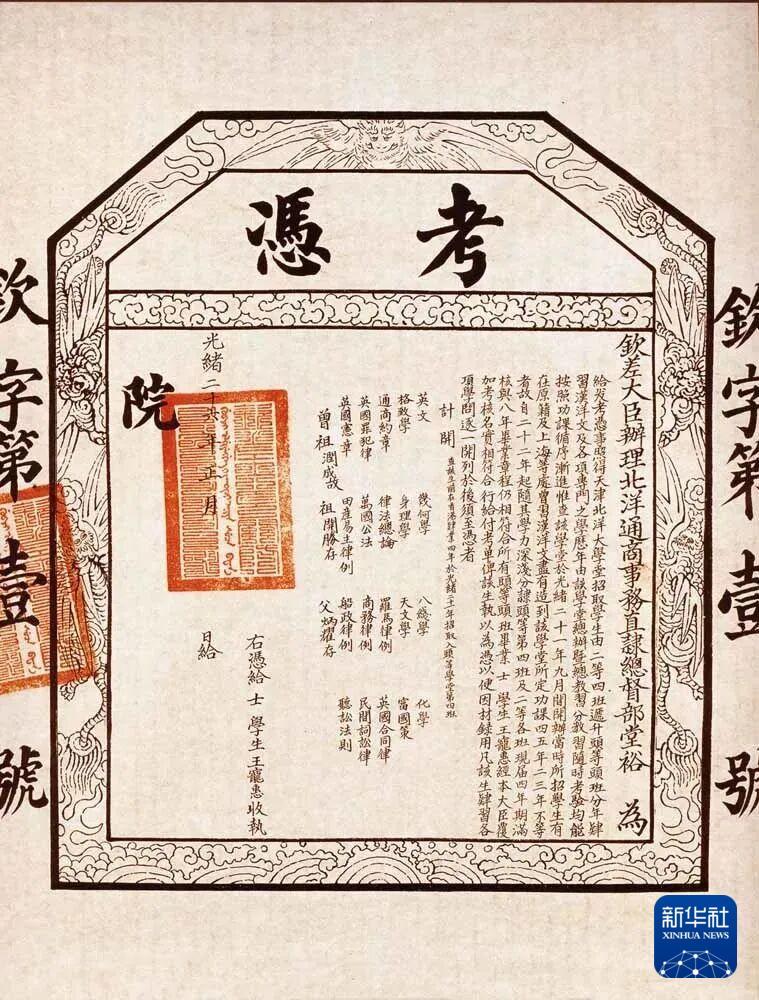 考憑
欽字第壹號
欽差大臣辦理北洋通商事務直隸總督部堂裕 為
給發考憑事照得天津北洋大學堂招取學生由二等四班遞升頭等頭班分年肄
習漢洋文及各項專門之學歷年由該學堂總辦暨總教習分教習隨時考驗均能
按照功課循序漸進惟查該學堂於光緒二十一年九月間開辦當時所招學生有
在原籍及上海等處曾習漢洋文盡有造到該學堂所定功課四五年二三年不等
者故自二十二年起隨其學力深淺分隸頭等第四班及二等各班現屆四年期滿
核與八年畢業章程仍相符合所有頭等頭班畢業士 學生王寵惠經本大臣覆
加考核名實相符合行給付考單俾該生執以為憑以便因材錄用凡該生肄習各
項學問逐一開列於後須至憑者
計開
英文 幾何學 八線學 化學
格致學 身理學 天文學 富國策
通商約章 律法總論 羅馬律例 英國合同律
英國罪犯律 萬國公法 商務律例 民間詞訟律
英國憲章 田產易主律例 船政律例 聽訟法則
曾祖潤成故 祖開勝存 父炳耀存
右憑給 士 學生王寵惠收執
光緒二十六年正月 日給
院
欽字第壹號
新华社
XINHUA NEWS